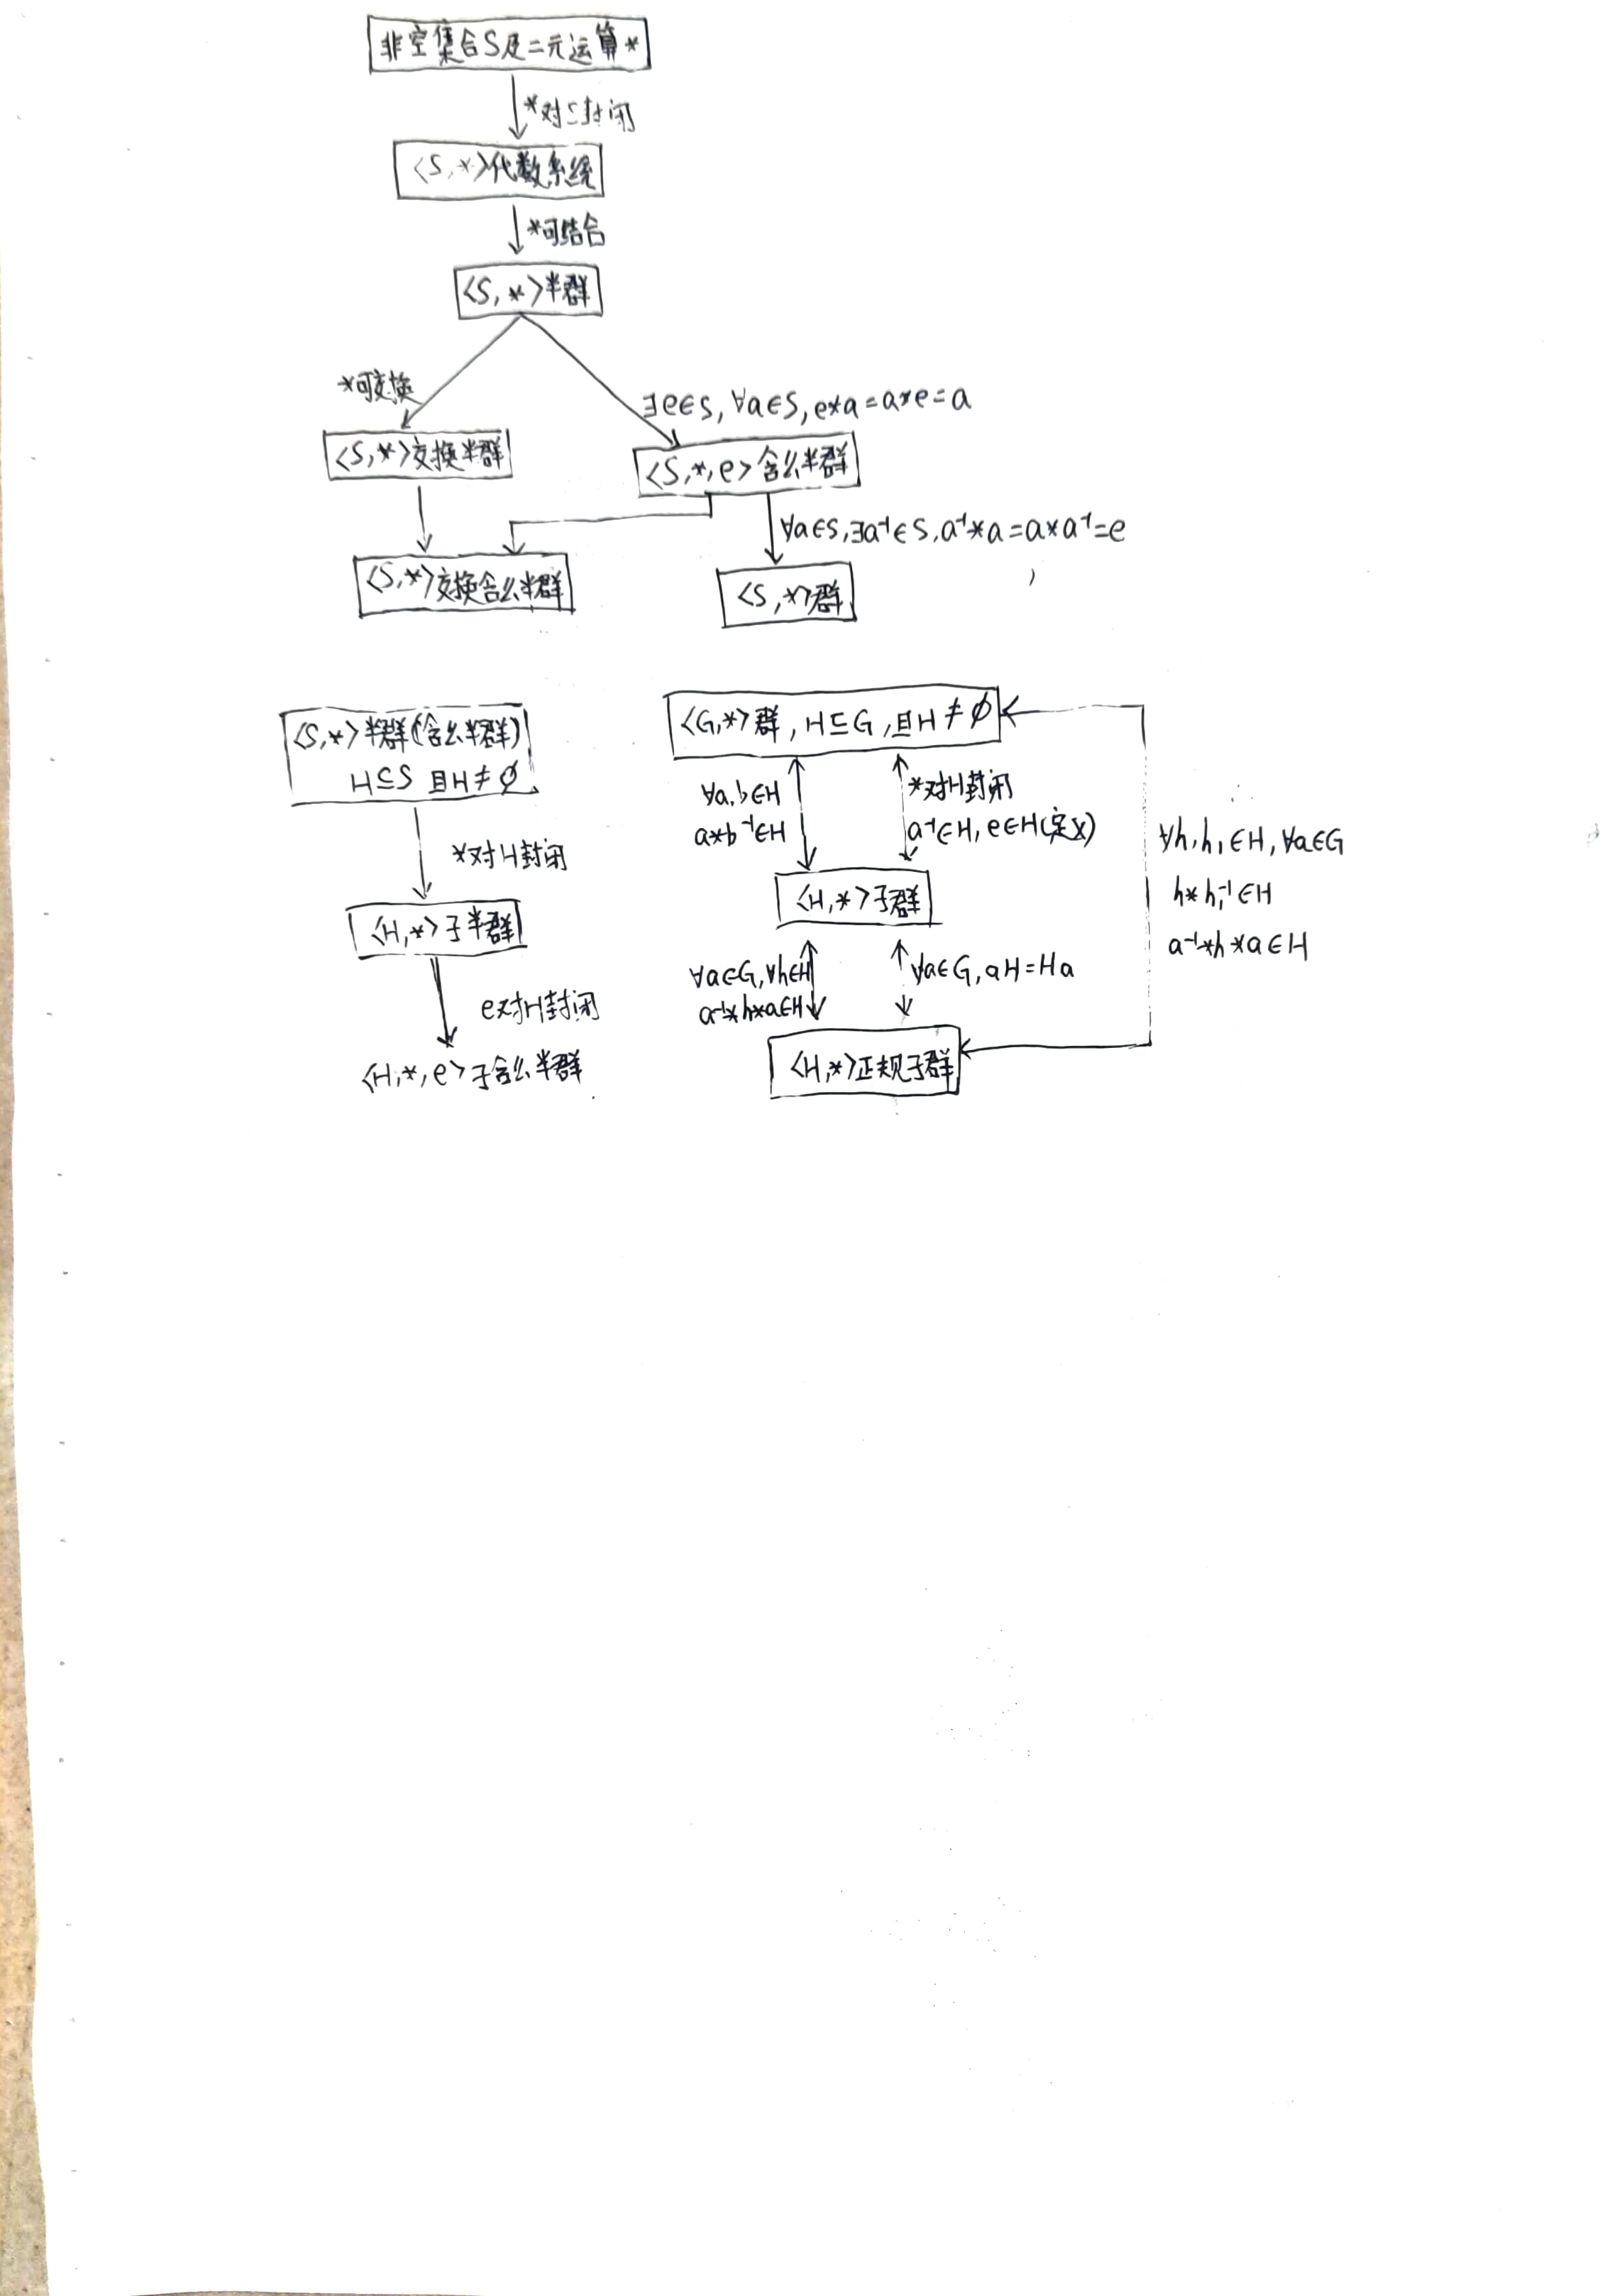 非空集合S及二元运算*
*对S封闭
<S,*>代数系统
*可结合
<S,*>半群
*可交换
∃e∈S, ∀a∈S, e*a=a*e=a
<S,*>交换半群
<S,*,e>含幺半群
∀a∈S,∃a⁻¹∈S,a⁻¹*a=a*a⁻¹=e
<S,*>交换含幺半群
<S,*>群
<S,*>半群(含幺半群)
H⊆S 且H≠∅
*对H封闭
<H,*>子半群
e对H封闭
<H,*,e>子含幺半群
<G,*>群,H⊆G,且H≠∅
∀a,b∈H
a*b⁻¹∈H
*对H封闭
a⁻¹∈H,e∈H(定义)
<H,*>子群
∀a∈G,∀h∈H
a⁻¹*h*a∈H
∀a∈G,aH=Ha
<H,*>正规子群
∀h,h₁∈H,∀a∈G
h*h₁⁻¹∈H
a⁻¹*h*a∈H